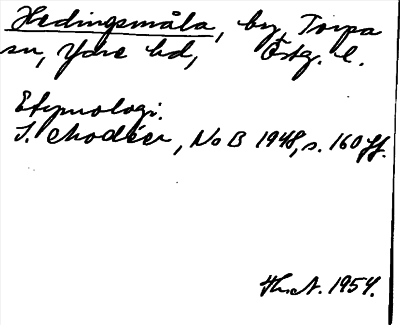 Hedingsmåla, by, Torpa
sn, Ydre hd, Östg. l.
Etymologi.
I. Modéer, NoB 1948, s. 160 ff.
Th. A. 1954.